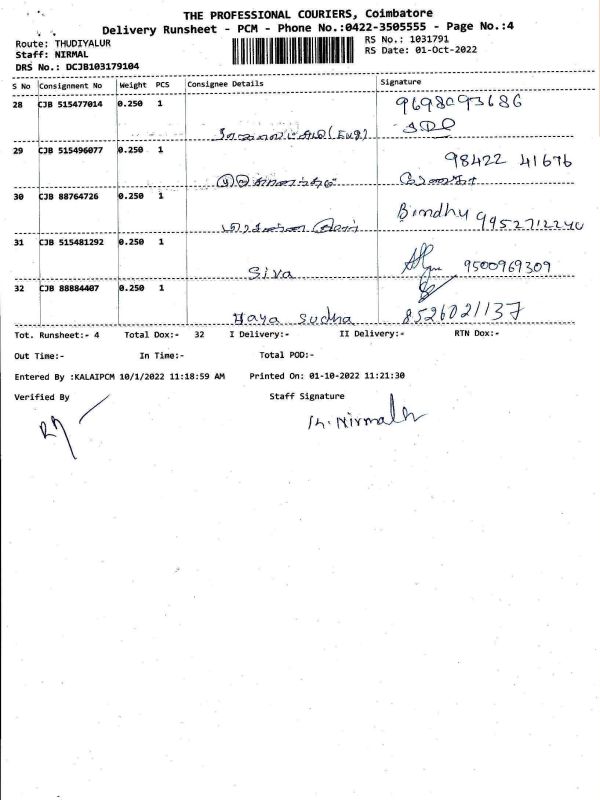 THE PROFESSIONAL COURIERS, Coimbatore
Delivery Runsheet - PCM - Phone No.:0422-3505555 - Page No.:4
Route: THUDIYALUR
Staff: NIRMAL
DRS No.: DCJB103179104
RS No.: 1031791
RS Date: 01-Oct-2022
S No Consignment No Weight PCS Consignee Details Signature
28 CJB 515477014 0.250 1 9698093686
29 CJB 515496077 0.250 1 98422 41676
30 CJB 88764726 0.250 1 Bindhu 9952712240
31 CJB 515481292 0.250 1 Siva 9500969309
32 CJB 88884407 0.250 1 Sudha 8526021137
Tot. Runsheet:- 4 Total Dox:- 32 I Delivery:- II Delivery:- RTN Dox:-
Out Time:- In Time:- Total POD:-
Entered By :KALAIPCM 10/1/2022 11:18:59 AM Printed On: 01-10-2022 11:21:30
Verified By Staff Signature